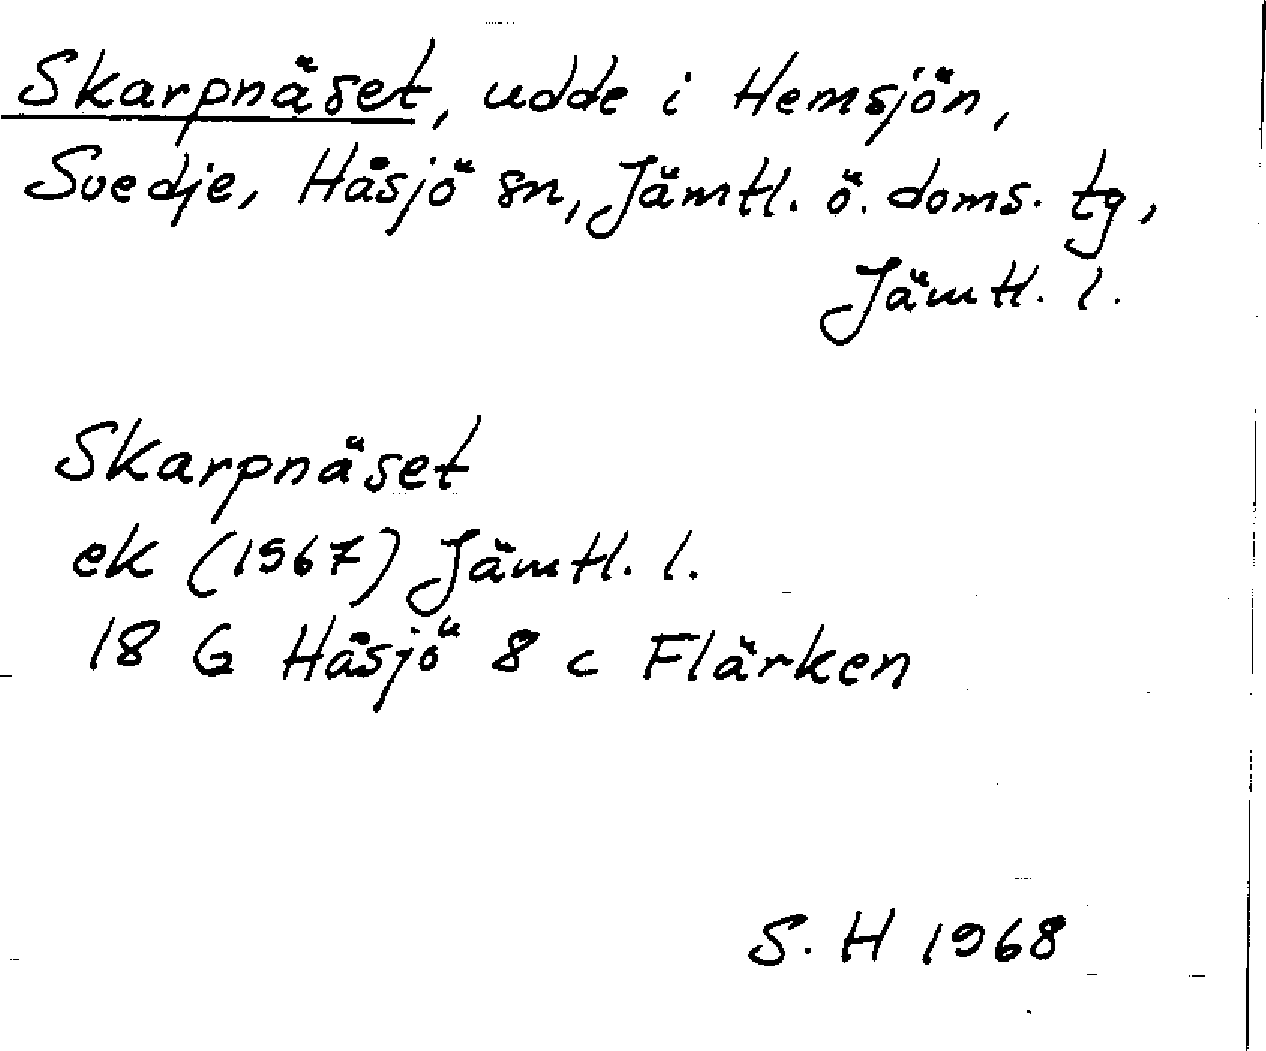 Skarpnäset, udde i Hemsjön,
Svedje, Håsjö sn, Jämtl. ö. doms. tg,
Jämtl. l.
Skarpnäset
ek (1967) Jämtl. l.
18 G Håsjö 8 c Flärken
S. H 1968